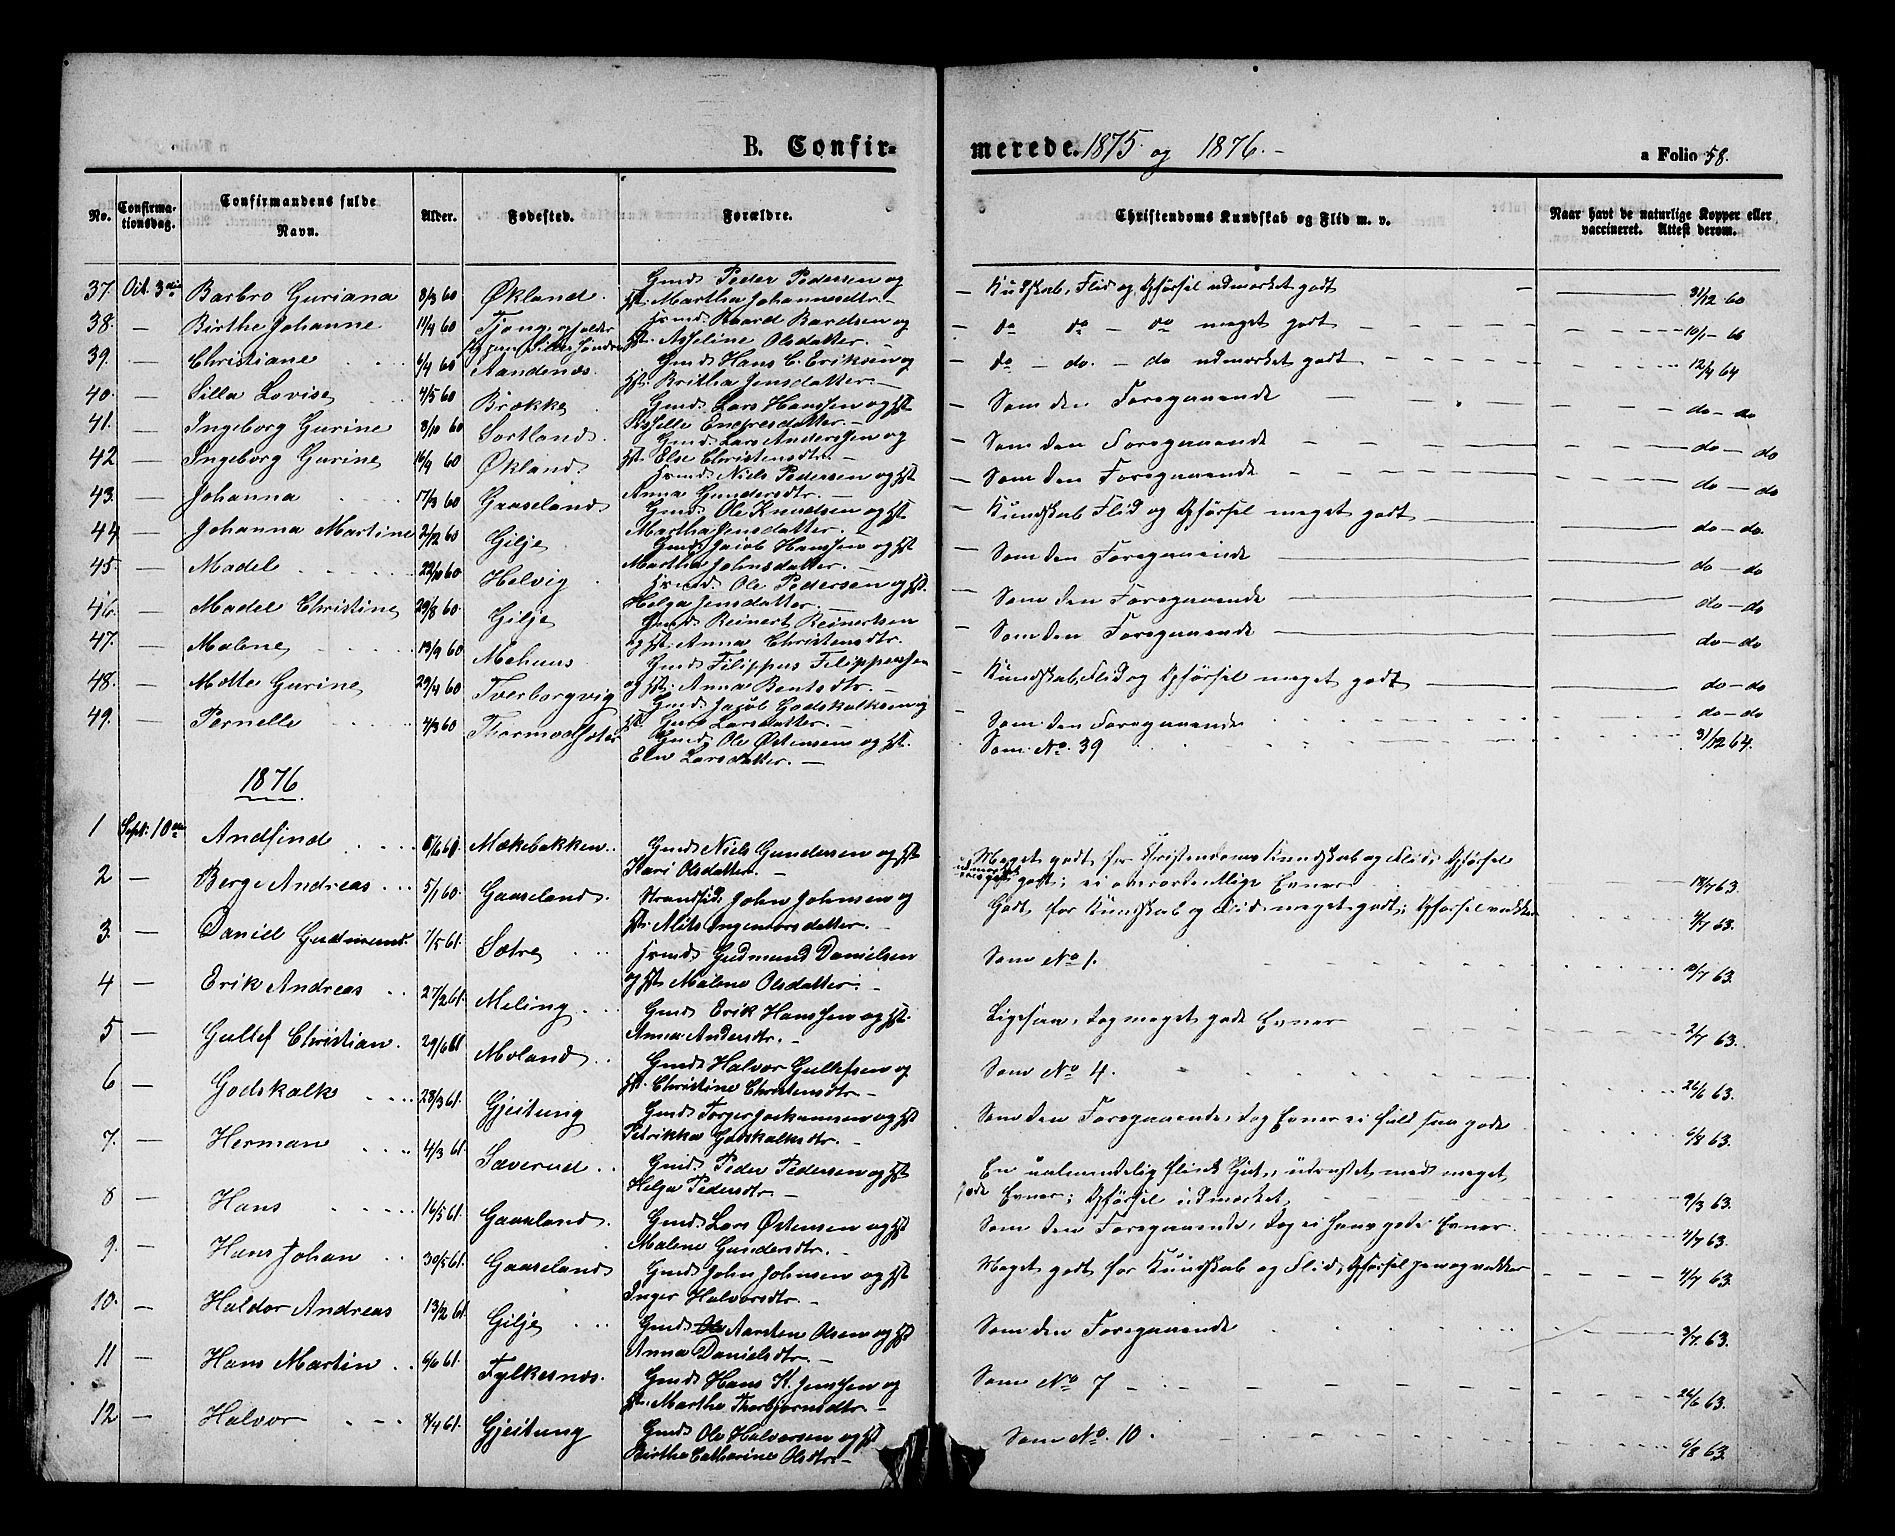 B. Confir-
merede. 1875 og 1876.-
a Folio 58.
No. Confirma-tionsdag. Confirmandens fulde Navn. Alder. Fødested. Forældre. Christendoms Kundskab og Flid m. v. Naar havt de naturlige Kopper eller vaccineret. Attest derom.
37. Oct. 3die Barbro Guriana 8/3 60 Økland. Gmd. Peder Pedersen og Hst. Martha Johannesdtr. - Kundskab, Flid og Opførsel udmærket godt 31/12 60
38. - Birthe Johanne 11/4 60 Baard Bardsen og Hst. Asseline Olsdatter. - do do - do meget godt 10/1 - 66
39. - Christiane 6/4 60 Aandenæs. Gmd. Hans C. Eriksen og Hst. Britha Jensdatter. - do - do. - do udmærket godt 12/9 64
40. - Silla Lovise 4/5 60 Brække. Gmd. Lars Hanssen og Hst. Sissille Endresdatter. - Som den Foregaaende do - do
41. - Ingeborg Gurine 8/10 60 Sortland. Gmd. Lars Anderssen og Hst. Else Christensdtr. - Som den Foregaaende do - do
42 - Ingeborg Gurine 16/9 60 Økland. Niels Pedersen og Hst Anna Gundersdtr. - Som den Foregaaende do - do
43. - Johanna 17/3 60 Gaaseland Gmd. Ole Knudsen og Hst Martha Jensdatter. - Kundskab Flid og Opførsel meget godt do - do.
44 - Johanna Martine 2/12 60 Gilje. Gmd. Jacob Hanssen og Hst Martha Johnsdatter. - Som den Foregaaende do - do
45. - Madel 22/10 60 Helvig. Ole Pedersen og Hst. Helga Jensdatter. - Som den Foregaaende do - do
46. - Madel Christine 29/8 60. Gilje Gmd. Reinert Reinertsen og Hst. Anna Christensdtr. - Som den Foregaaende do - do
47. - Malene 13/9 60 Mehuus Gmd. Filippus Filippussen og Hst. Anna Bentsdtr. - Kundskab, Flid og Opførsel meget godt do - do
48. - Mette Gurine 29/4 60 Tverborgvig Gmd. Jacob Godskalksen og Hst. Guro Larsdatter. - Som den Foregaaende do - do
49. - Pernelle 4/3 60 Gmd. Ole Østensen og Hst. Elen Larsdatter. - Som No. 39 31/12 64.
1876
1 Sept. 10de Andfind Mækebakken. Gmd. Niels Gundersen og Hst Kari Olsdatter. - Meget godt for Christendoms Kundskab og Flid; Opførsel udmærket godt; ei overordentlige Evner 63.
2 - Berge Andreas 5/1 60. Gaaseland. Strandsid. John Johnsen og Hst. Alis Ingemorsdatter. - Godt for Kundskab og Flid, meget godt; Opførsel vakker 63.
3. - Daniel Gudmund. 7/5 61. Sætre Gudmund Danielsen og Hst. Malene Olsdatter. - Som No 1. 10/7 63.
4 - Erik Andreas 27/2 61. Meling. Gmd. Erik Hanssen og Hst. Anna Andersdtr. - Ligesaa, dog meget gode Evner 2/7 63.
5 - Gullef Christian. 29/6 61 Moland. Gmd. Halvor Gullefsen og Hst. Christine Christensdtr. - Som No 4. 26/6 63.
6 - Godskalk 28/3 61. Gjeitung Gmd. Torger Johannesen og Hst Petrikka Godskalksdtr. - Som den Foregaaende, dog Evner ei fuld saa gode 6/8 63.
7. - Herman 4/3 61. Sæverud. Gmd. Peder Pedersen og Hst Helga Pedersdtr. - En ualmindelig flink Gut, udrustet med meget gode Evner; Opførsel udmærket 9/3 63.
8 - Hans 16/5 61. Gaaseland. Gmd. Lars Østensen og Hst Malene Gundersdtr. - Som den Foregaaende, dog ei saa gode Evner. 7/7 63.
9. - Hans Johan 30/5 61. Gaaseland Gmd. John Johnsen og Hst Inger Halvorsdtr. - Meget godt for Kundskab og Flid, Opførsel pen og vakker 7/7 63.
10. - Haldor Andreas 13/2 61. Gilje. Gmd. Aarsten Olsen og Hst Anna Danielsdtr. - Som den Foregaaende 3/7 63.
11 - Hans Martin 6/6 61. Fylkesnæs. Gmd. Hans K. Jenssen og Hst. Martha Thorbjørnsdtr. - Som No 7 26/6 63.
12 - Halvor 8/4 61. Gjeitung Gmd. Ole Halvorsen og Hst Birthe Catharine Olsdtr. - Som No. 10. 6/8 63.